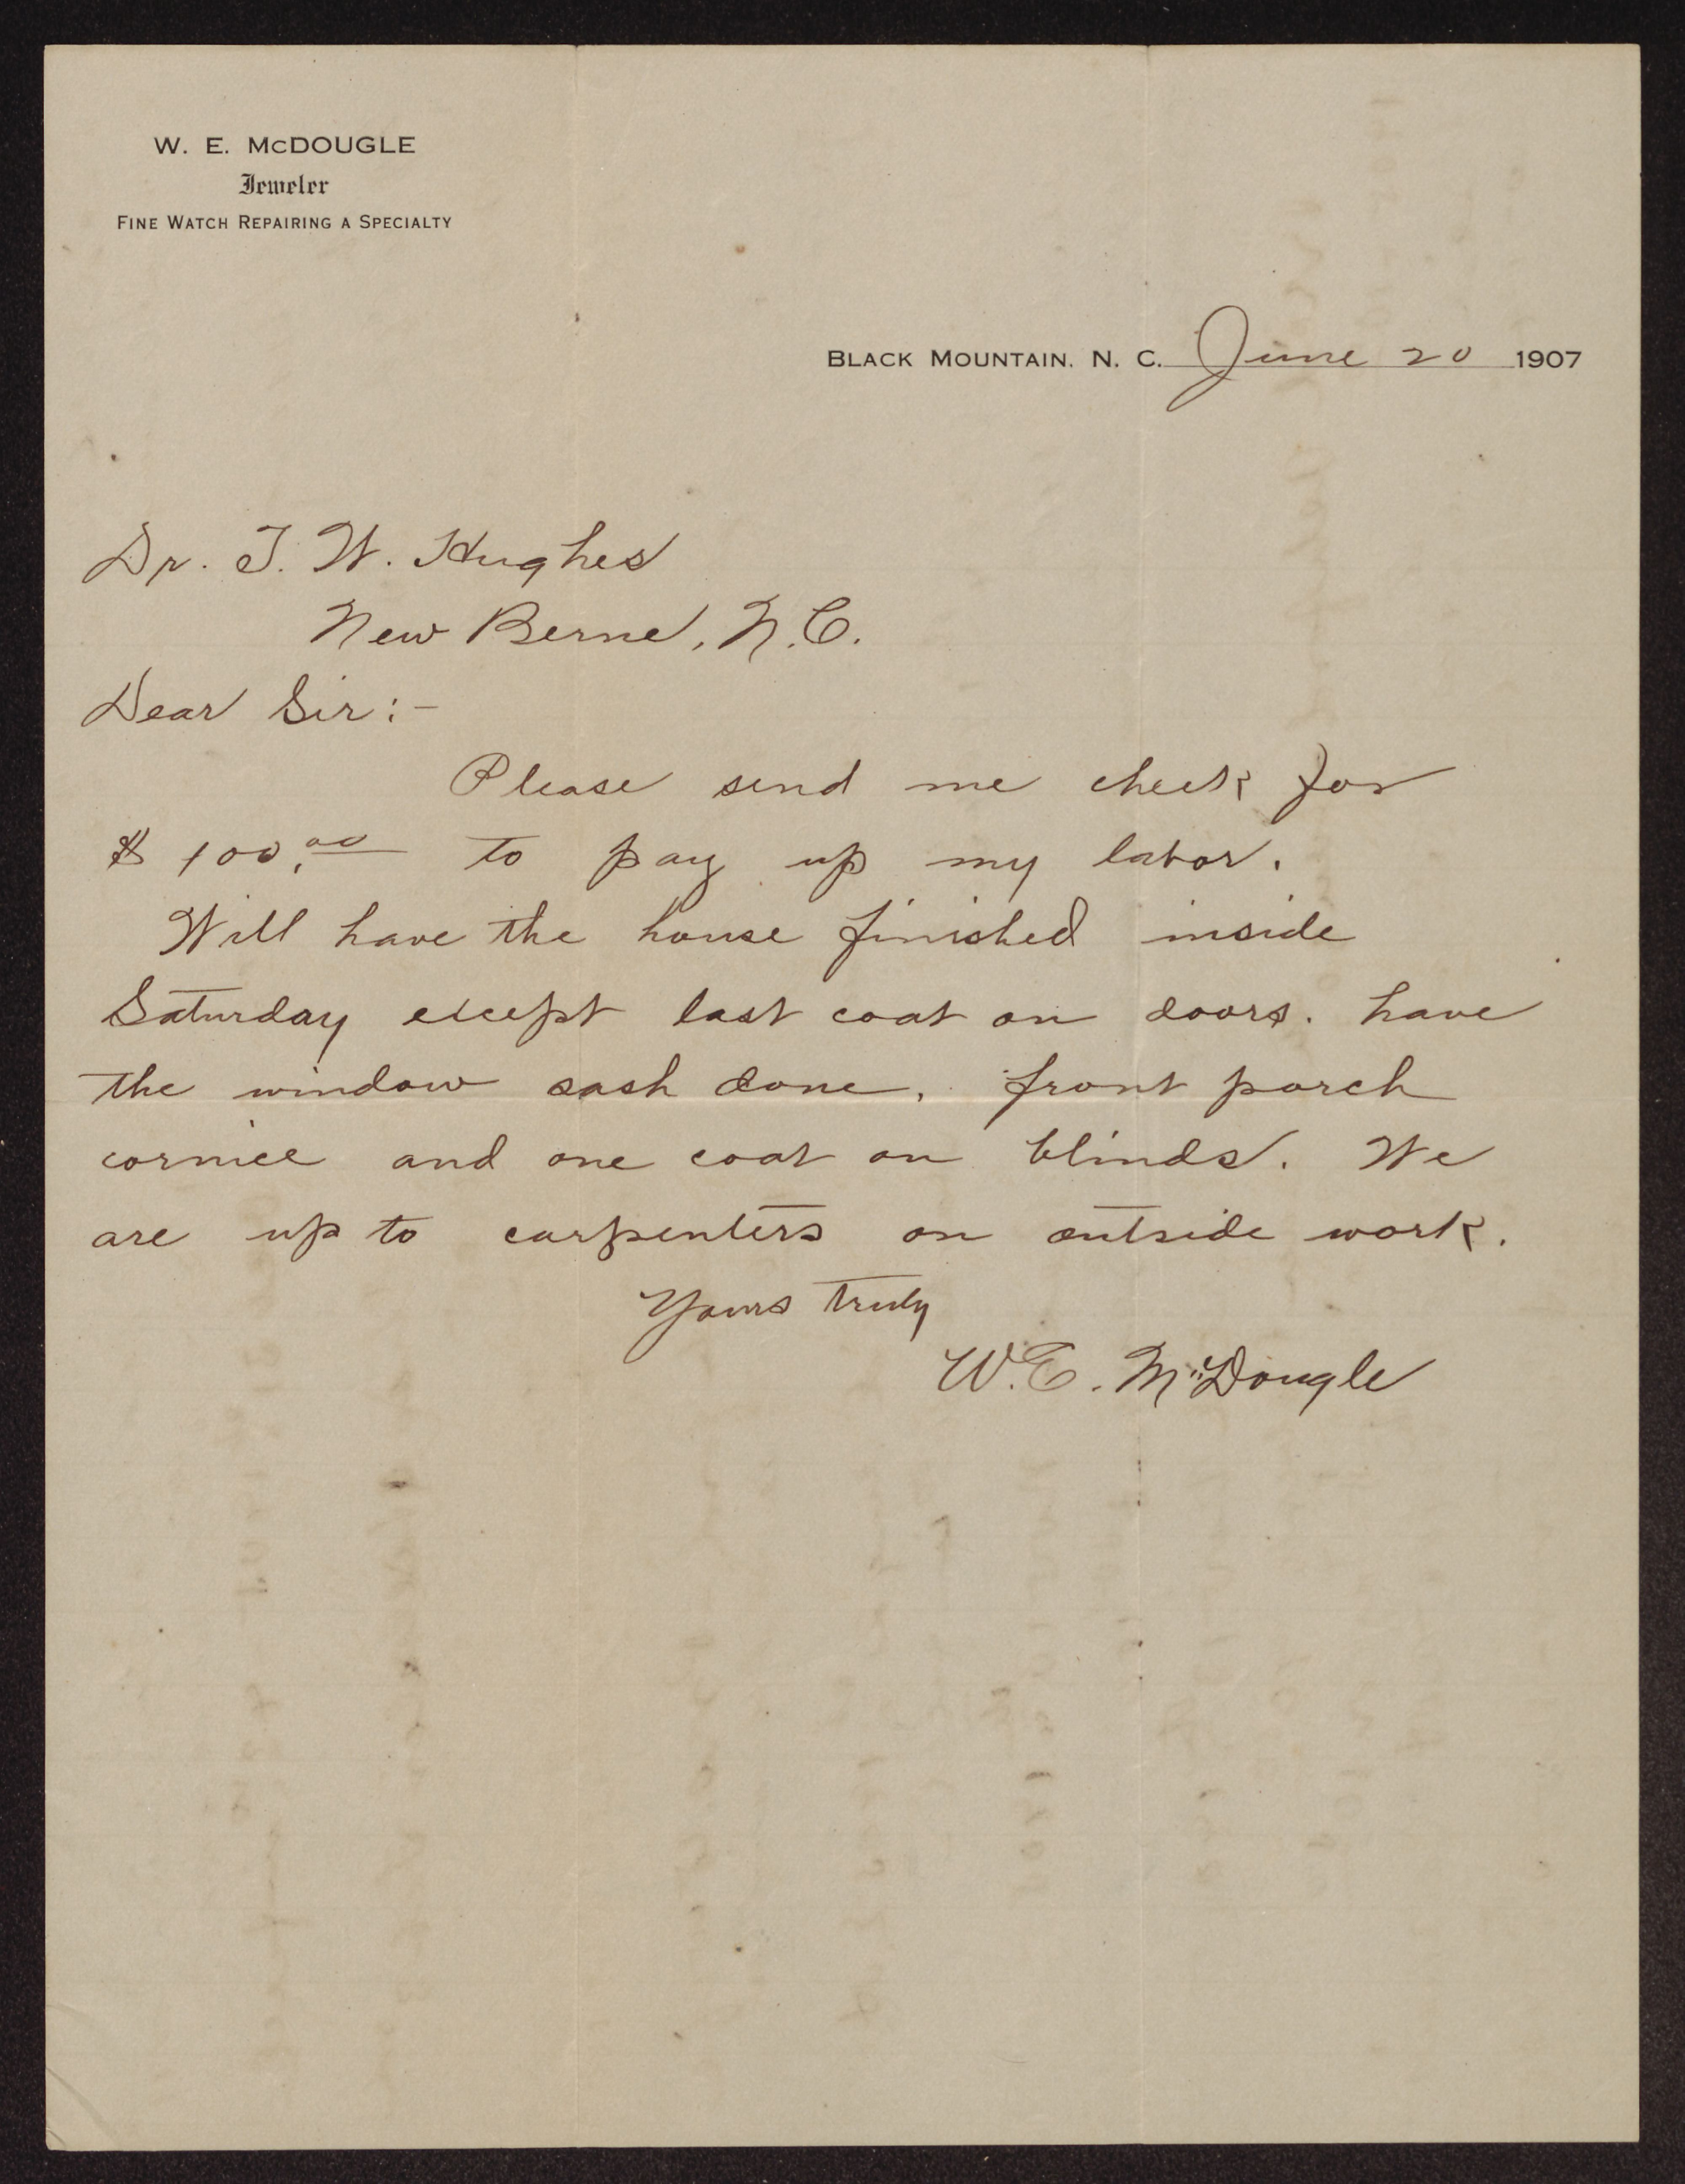 W. E. McDOUGLE
Jeweler
FINE WATCH REPAIRING A SPECIALTY
BLACK MOUNTAIN, N. C. June 20 1907
Dr. T. W. Hughes
New Berne, N.C.
Dear Sir:-
Please send me check for
$100.00 to pay up my labor.
Will have the house finished inside
Saturday except last coat on doors. have
the window sash done, front porch
cornice and one coat on blinds. We
are up to carpenters on outside work.
Yours truly
W.E. McDougle